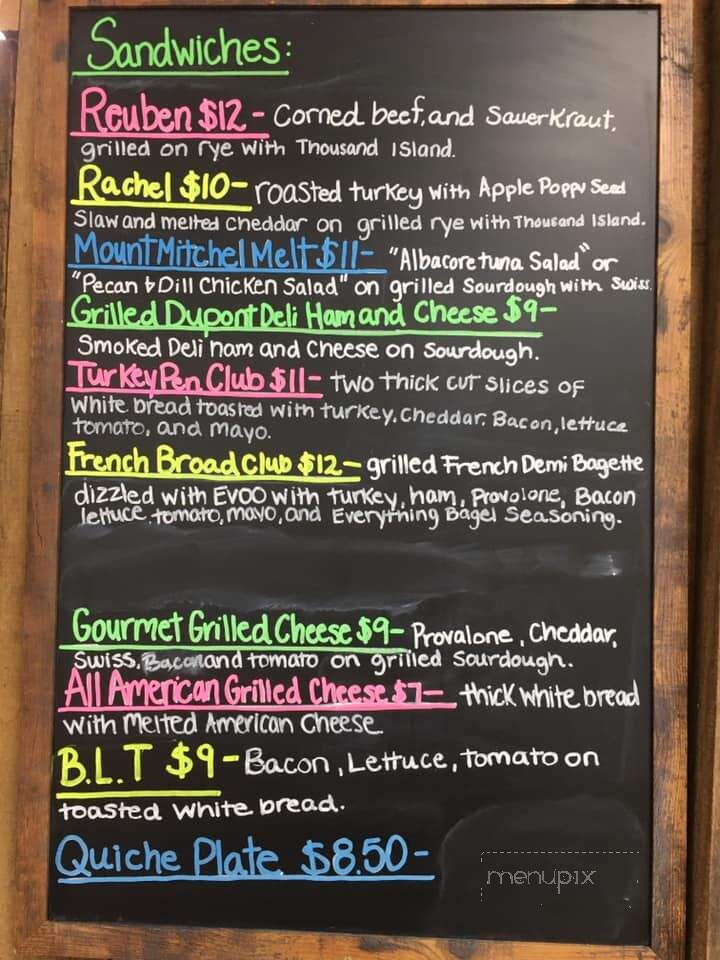 Sandwiches:
Reuben $12- Corned beef, and Sauerkraut,
grilled on rye with Thousand Island.
Rachel $10- roasted turkey with Apple Poppy Seed
Slaw and melted cheddar on grilled rye with Thousand Island.
Mount Mitchel Melt $11- "Albacore tuna Salad" or
"Pecan & Dill Chicken Salad" on grilled Sourdough with Swiss.
Grilled Dupont Deli Ham and Cheese $9-
Smoked Deli ham and Cheese on Sourdough.
Turkey Pen Club $11- two thick cut slices of
white bread toasted with turkey, cheddar, Bacon, lettuce
tomato, and mayo.
French Broad Club $12- grilled French Demi Bagette
dizzled with EVOO with turkey, ham, Provolone, Bacon
lettuce, tomato, mayo, and Everything Bagel Seasoning.
Gourmet Grilled Cheese $9- Provalone, Cheddar,
Swiss, Bacon and tomato on grilled Sourdough.
All American Grilled Cheese $7- thick white bread
with Melted American Cheese
B.L.T $9- Bacon, Lettuce, Tomato on
toasted white bread.
Quiche Plate $8.50-
menupix